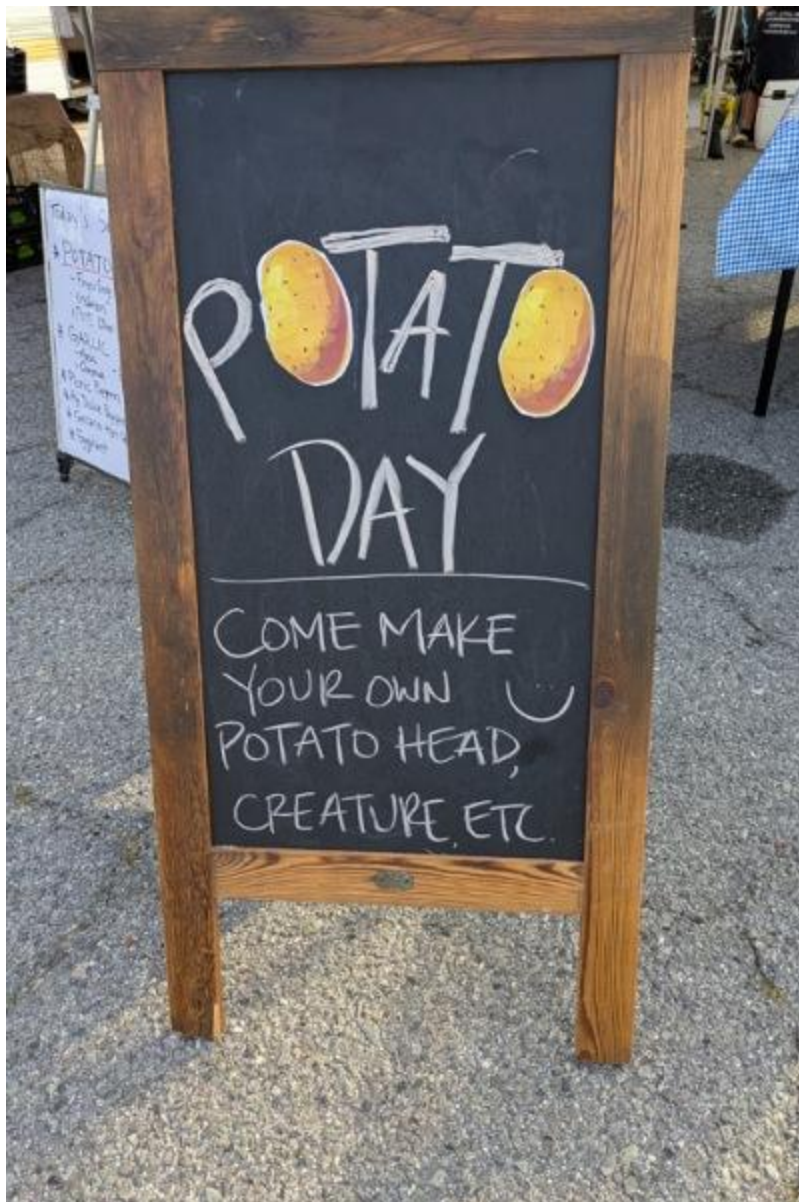 POTATO
DAY
COME MAKE
YOUR OWN
POTATO HEAD,
CREATURE, ETC.
Today's
* POTATO
* GARLIC
* Eggplant